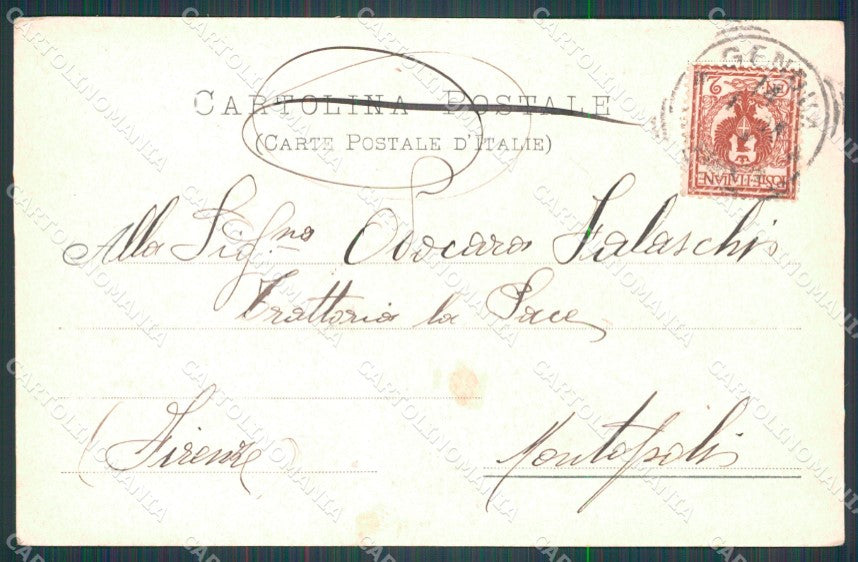 CARTOLINA POSTALE
(CARTE POSTALE D'ITALIE)
GENOVA
2
POSTE ITALIANE
Alla Sig.na Odocara Falaschi
Trattoria la Pace
(Firenze)
Montopoli
CARTOLINOMANIA